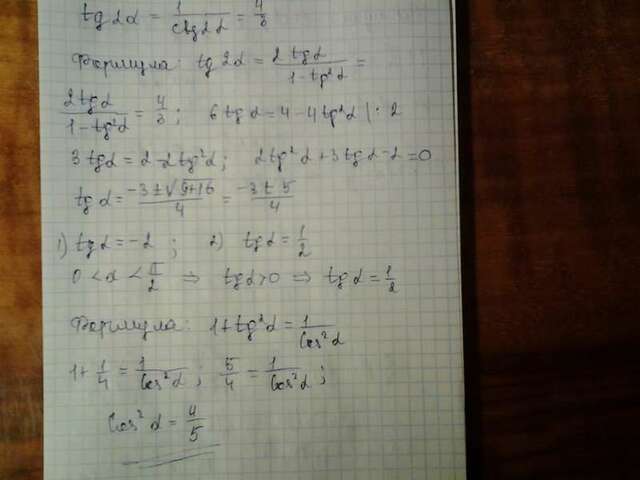 tg 2α = 1/ctg 2α = 4/3
Формула: tg 2α = 2 tg α/1 - tg²α =
2 tg α/1 - tg²α = 4/3 ; 6 tg α = 4 - 4 tg²α | : 2
3 tg α = 2 - 2 tg²α ; 2 tg²α + 3 tg α - 2 = 0
tg α = -3 ± √9+16/4 = -3 ± 5/4
1) tg α = -2 ; 2) tg α = 1/2
0 < α < π/2 ⇒ tg α > 0 ⇒ tg α = 1/2
Формула: 1 + tg²α = 1/Cos²α
1 + 1/4 = 1/Cos²α ; 5/4 = 1/Cos²α ;
Cos²α = 4/5